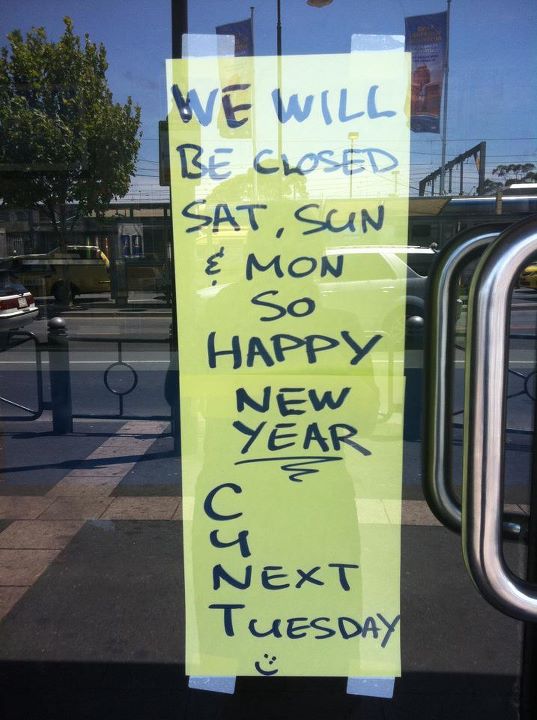 WE WILL
BE CLOSED
SAT, SUN
& MON
SO
HAPPY
NEW
YEAR
C
U
NEXT
TUESDAY